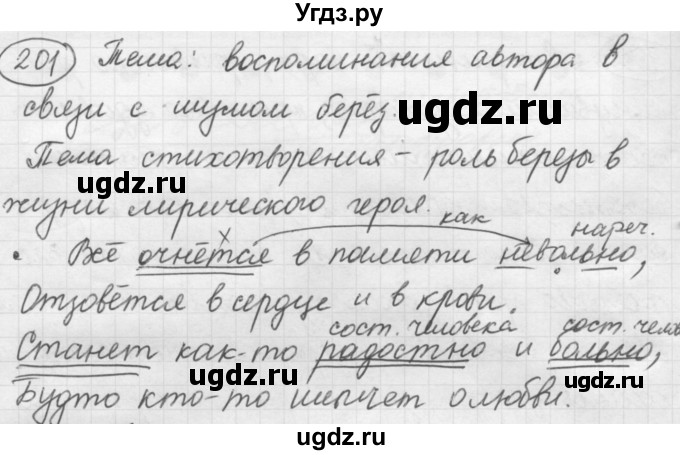 Угдз.ру
201 Тема: воспоминания автора в
связи с шумом берёз.
ugdz.ru
Тема стихотворения – роль березы в
ugdz.ru
жизни лирического героя.
как
нареч.
• Всё очнётся в памяти невольно,
ugdz.ru
Отзовётся в сердце и в крови.
сост. человека сост. чело
Станет как-то радостно и больно,
ugdz.ru ugdz.ru
Будто кто-то шепчет о любви.
ugdz.ru